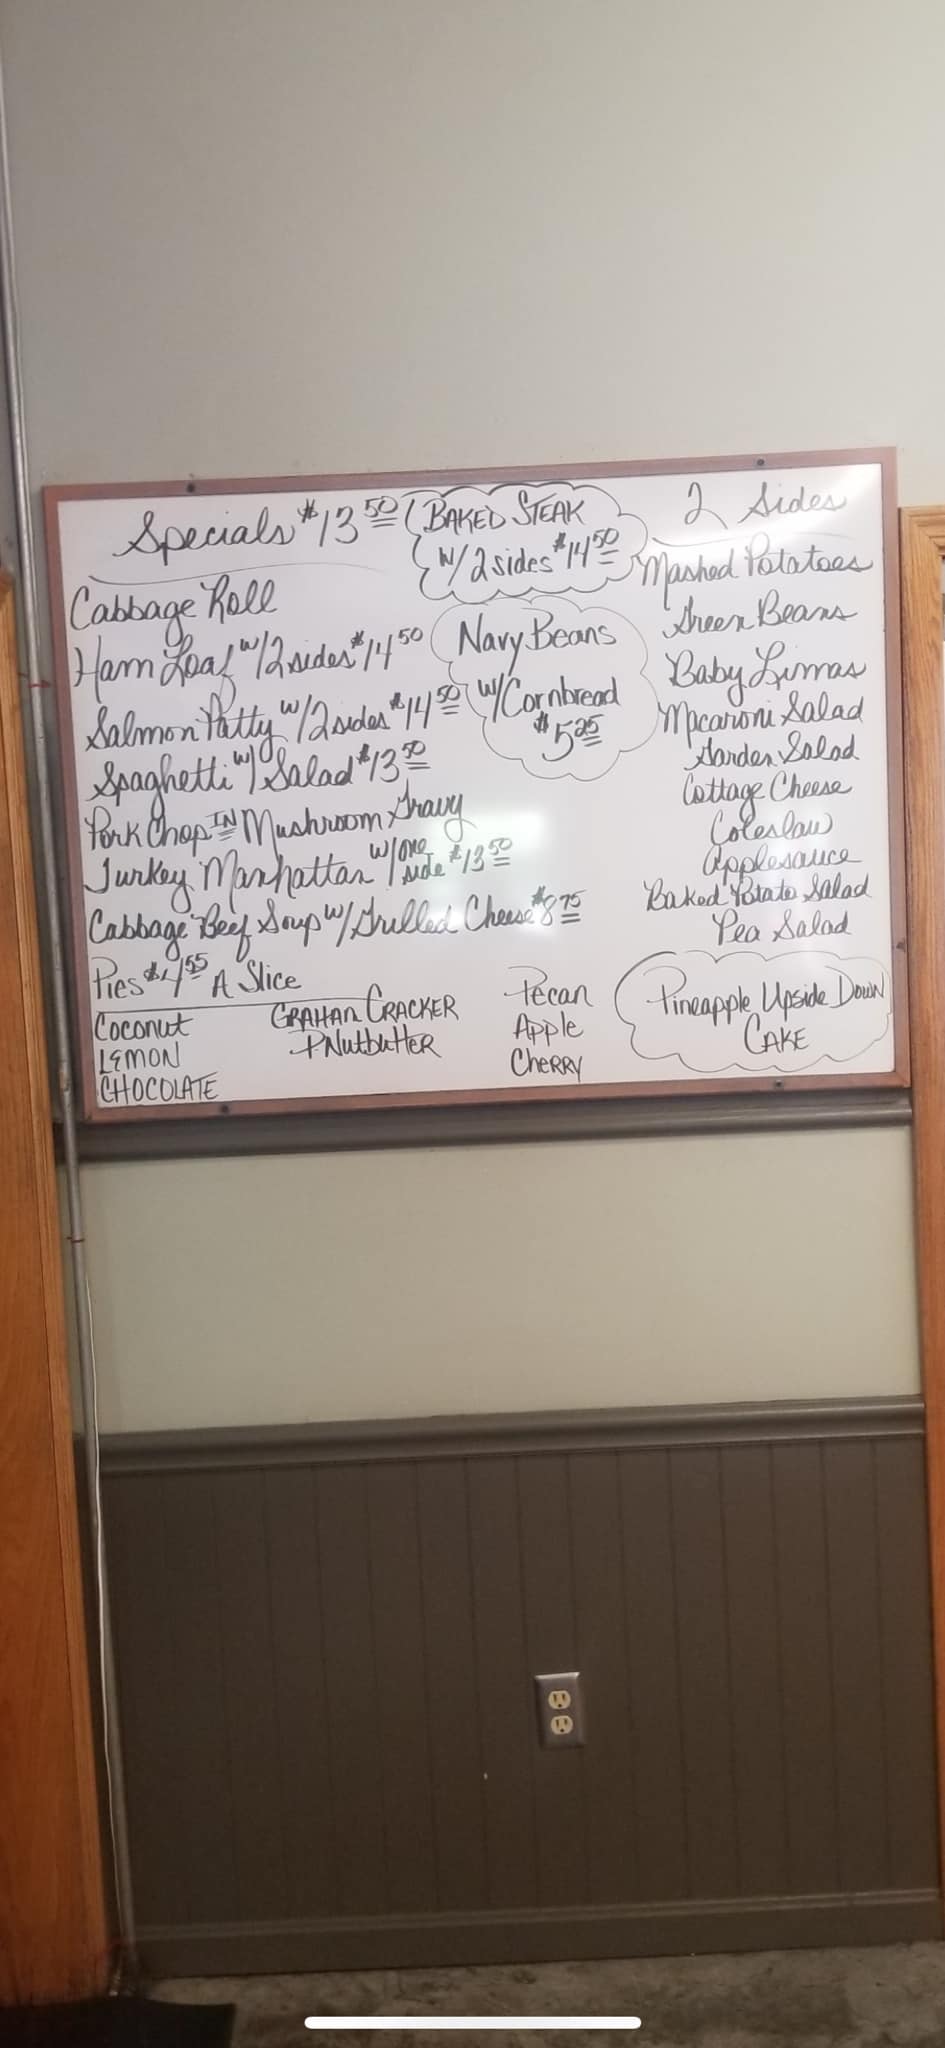 Specials $13 50
Cabbage Roll
Ham Loaf w/2 sides $14 50
Salmon Patty w/2 sides $14 50
Spaghetti w/ Salad $13 50
Pork Chop IN Mushroom Gravy
Turkey Manhattan w/one side $13 50
Cabbage Beef Soup w/Grilled Cheese $8 75
BAKED STEAK
w/2 sides $14 50
Navy Beans
w/Cornbread
$5 25
2 Sides
Mashed Potatoes
Green Beans
Baby Limas
Macaroni Salad
Garden Salad
Cottage Cheese
Coleslaw
Applesauce
Baked Potato Salad
Pea Salad
Pies $4 55 A Slice
Coconut
LEMON
CHOCOLATE
GRAHAM CRACKER
PNutbuttER
Pecan
Apple
CheRRY
Pineapple Upside Down
CAKE